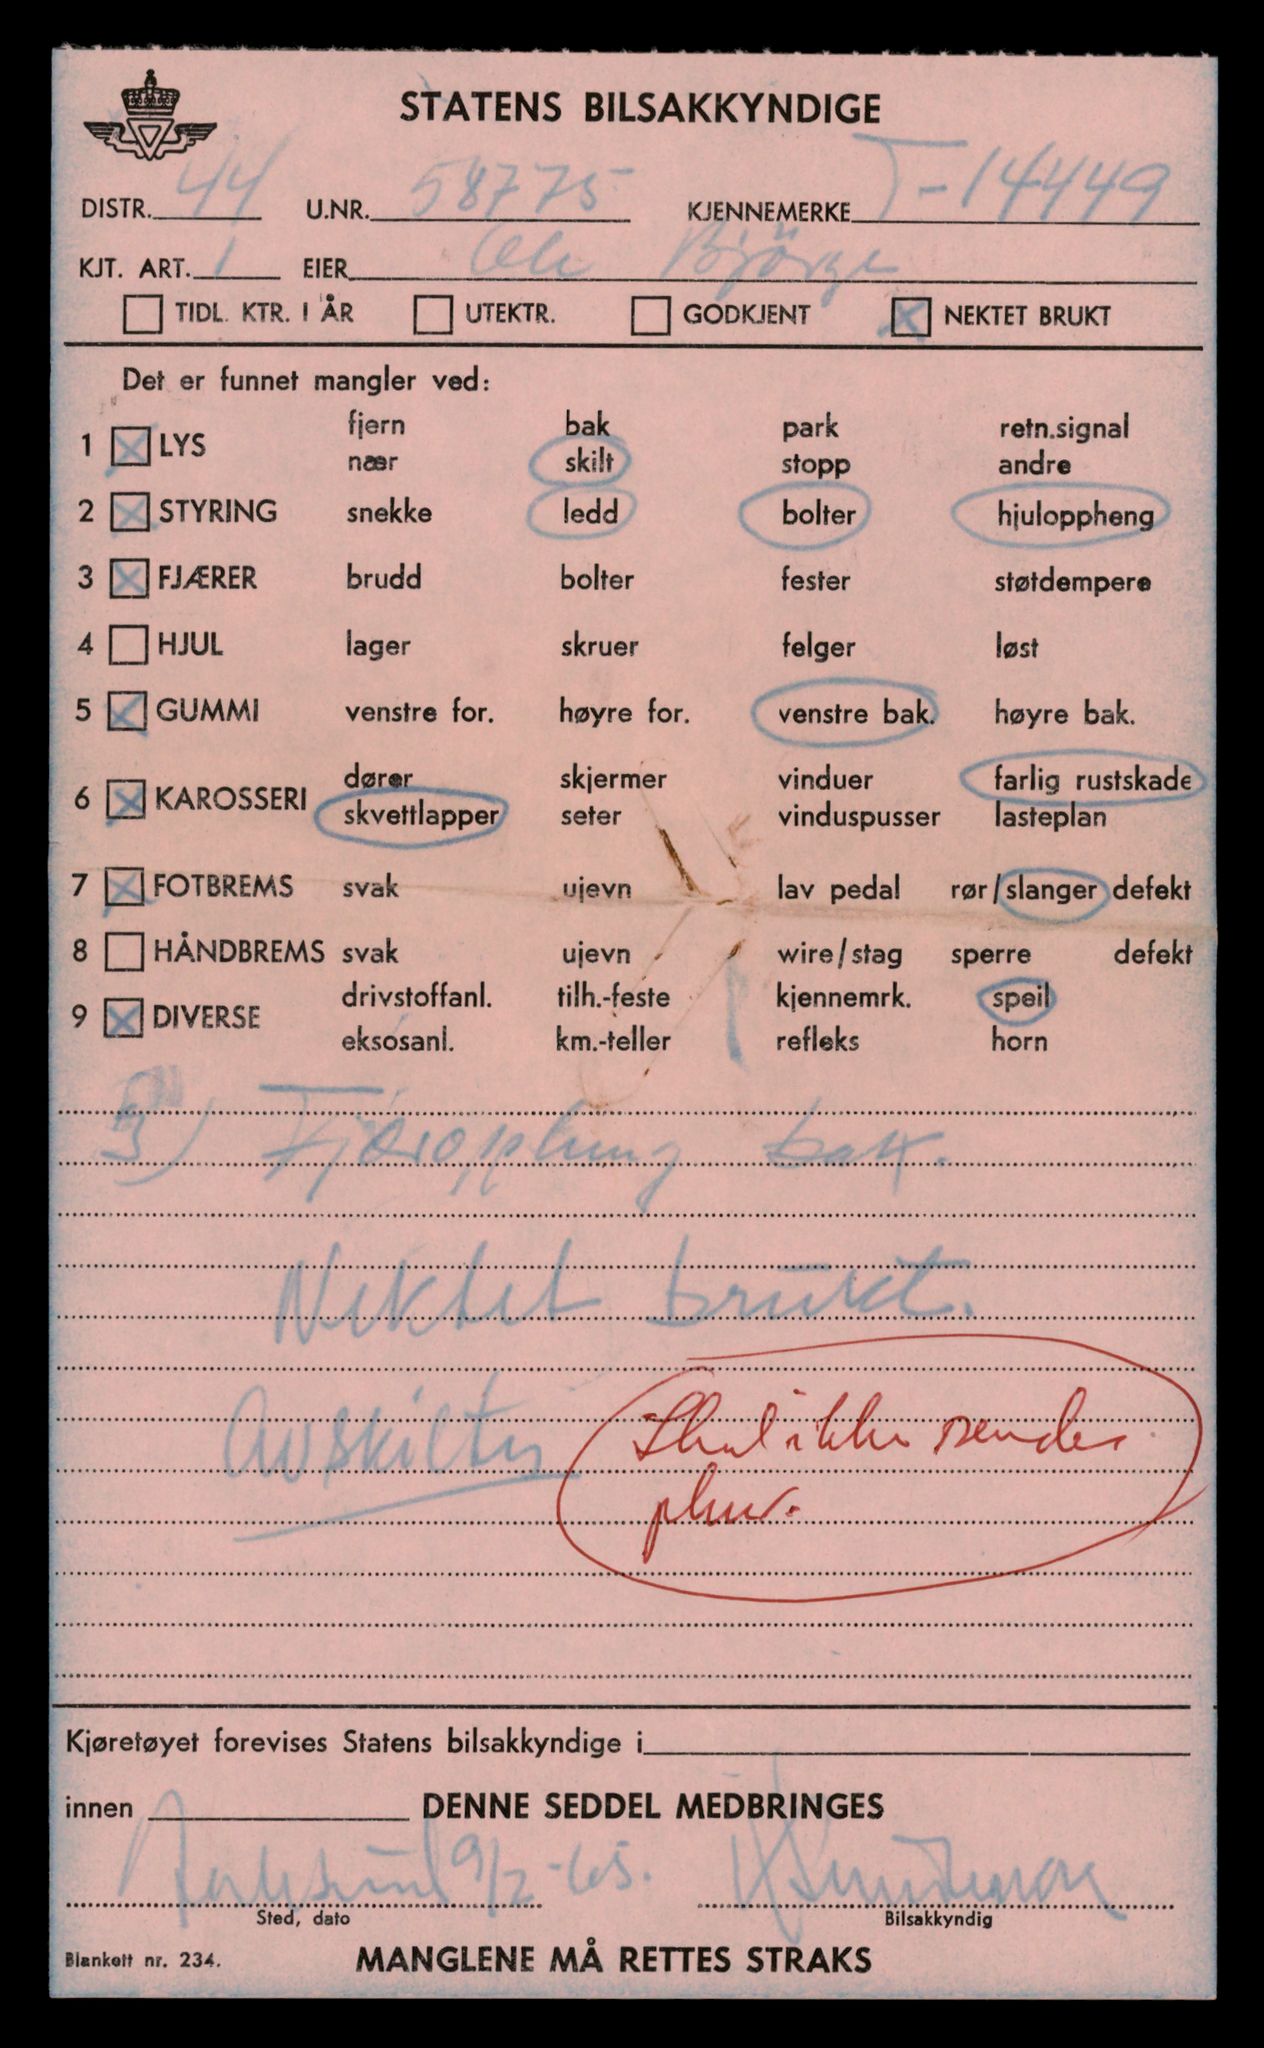 STATENS BILSAKKYNDIGE
DISTR. 44 U.NR. 58775 KJENNEMERKE T-14449
KJT. ART. 1 EIER Ole Björge
TIDL. KTR. I ÅR UTEKTR. GODKJENT NEKTET BRUKT
Det er funnet mangler ved:
fjern bak park retn.signal
1 LYS
nær skilt stopp andre
2 STYRING snekke ledd bolter hjuloppheng
3 FJÆRER brudd bolter fester støtdempere
4 HJUL lager skruer felger løst
5 GUMMI venstre for. høyre for. venstre bak. høyre bak.
dører skjermer vinduer farlig rustskade
6 KAROSSERI
skvettlapper seter vinduspusser lasteplan
7 FOTBREMS svak ujevn lav pedal rør/slanger defekt
8 HÅNDBREMS svak ujevn wire/stag sperre defekt
drivstoffanl. tilh.-feste kjennemrk. speil
9 DIVERSE
eksosanl. km.-teller refleks horn
3) bak.
Nektet brukt.
Avskiltes
Skal ikke sendes
Kjøretøyet forevises Statens bilsakkyndige i
innen DENNE SEDDEL MEDBRINGES
9/2-65.
Sted, dato Bilsakkyndig
Blankett nr. 234. MANGLENE MÅ RETTES STRAKS